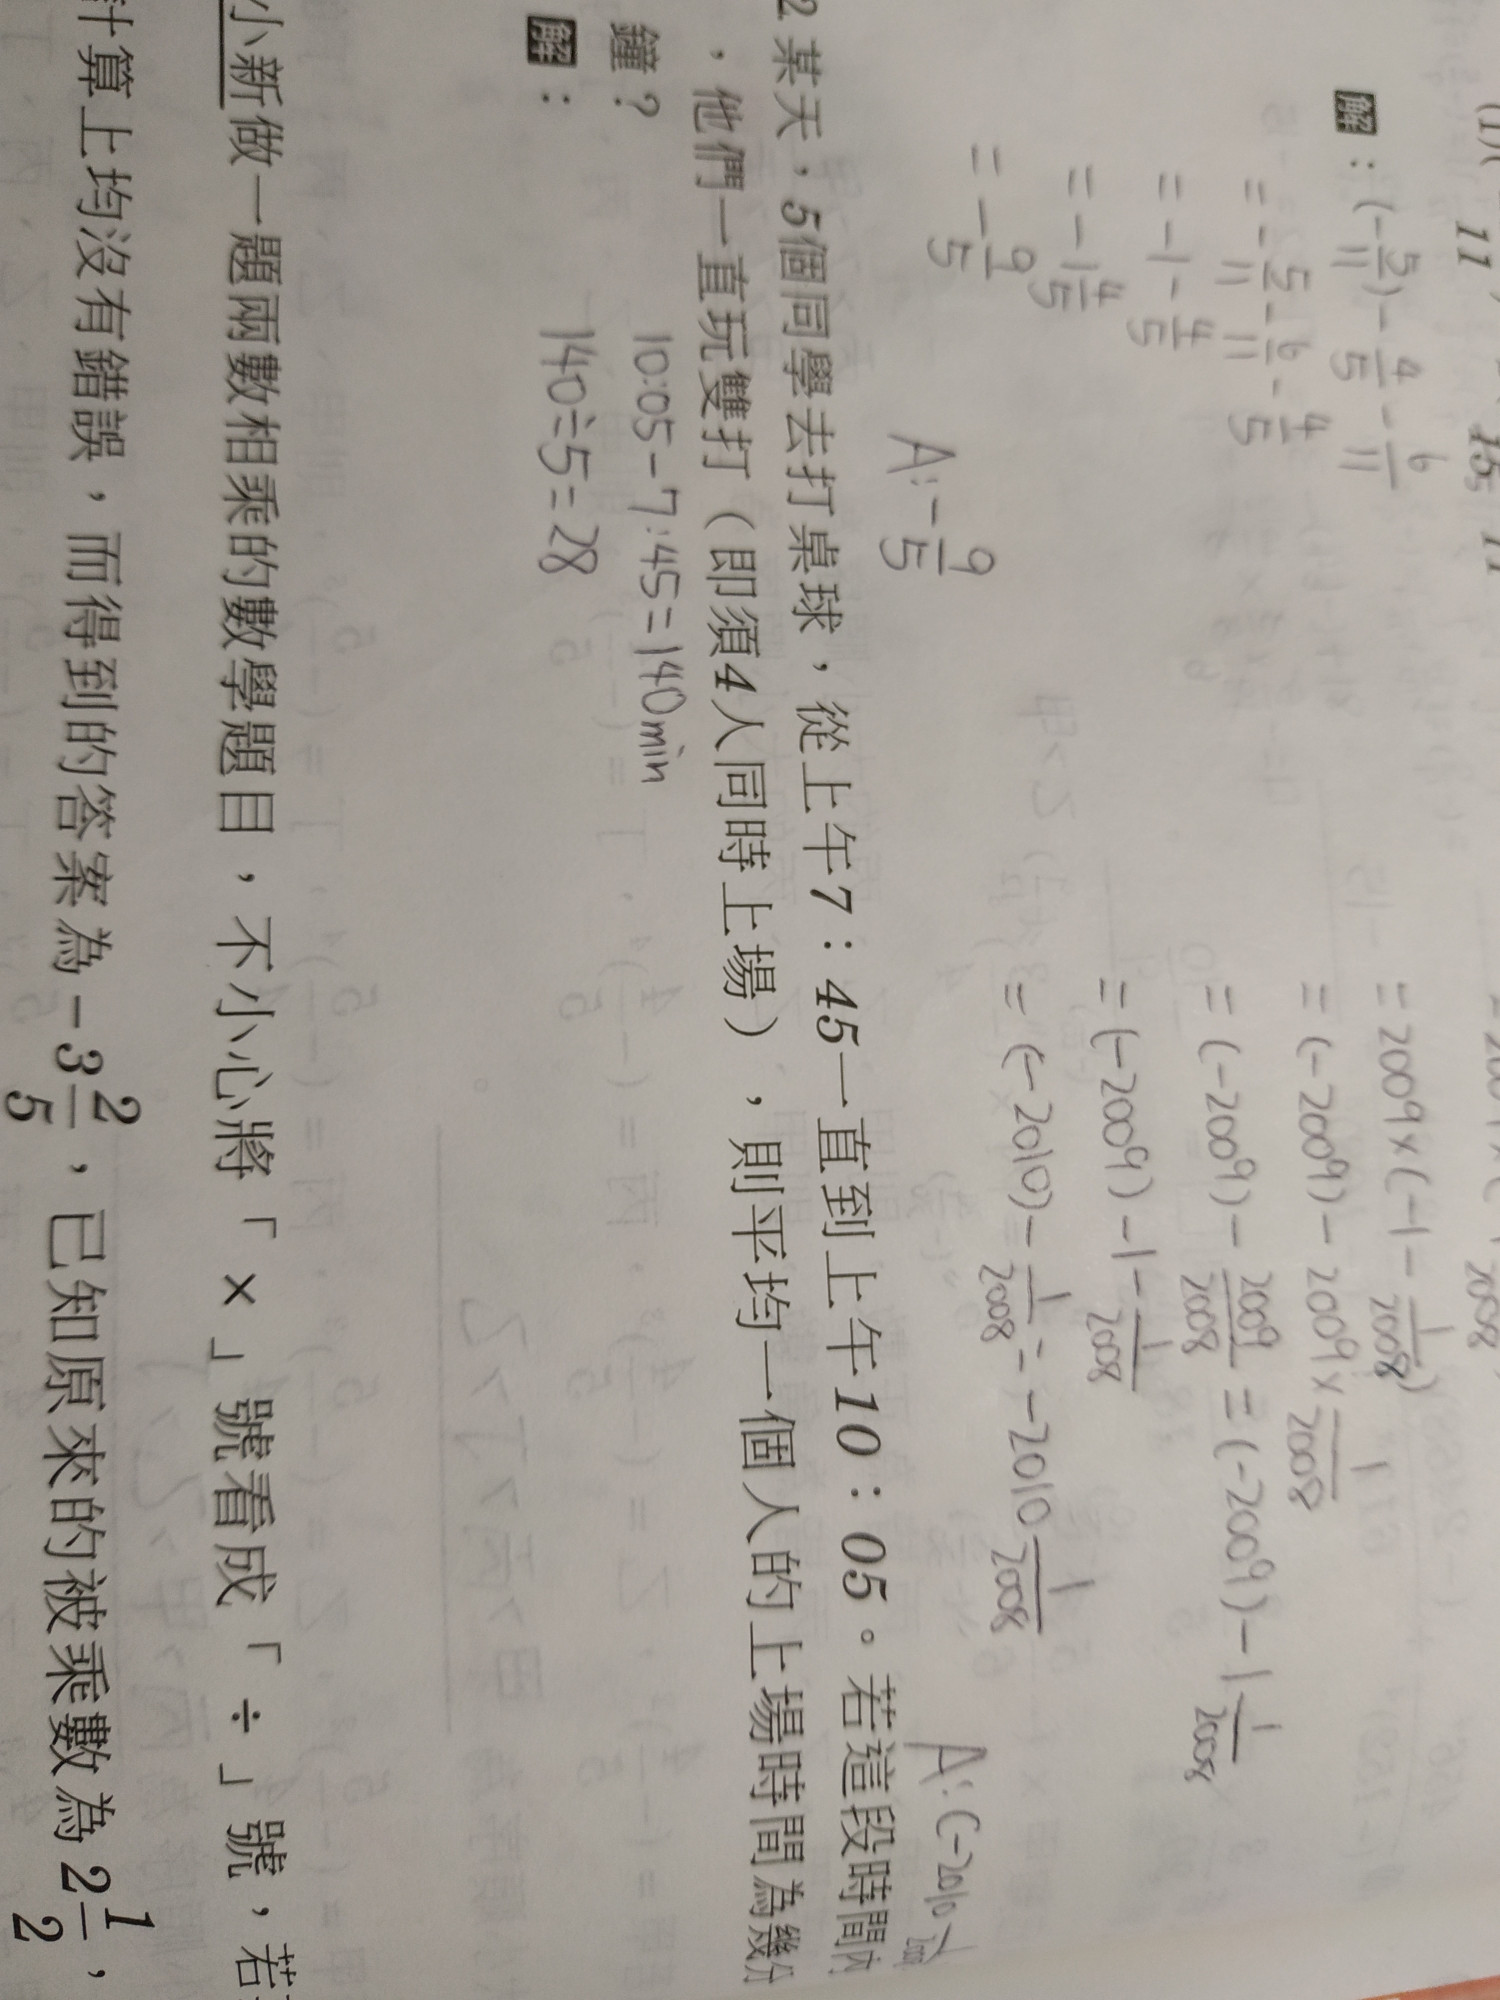 (1)(
11
15
11
2008
解：(-5/11)-4/5-6/11
=-5/11-6/11-4/5
=-1-4/5
=-1 4/5
=-9/5
A:-9/5
=2009×(-1-1/2008)
=(-2009)-2009×1/2008
=(-2009)-2009/2008=(-2009)-1 1/2008
=(-2009)-1-1/2008
=(-2010)-1/2008=-2010 1/2008
A:(-2010
2 某天，5個同學去打桌球，從上午7：45一直到上午10：05。若這段時間內
，他們一直玩雙打（即須4人同時上場），則平均一個人的上場時間為幾分
鐘？
解：
10:05-7:45=140min
140÷5=28
小新做一題兩數相乘的數學題目，不小心將「×」號看成「÷」號，若
計算上均沒有錯誤，而得到的答案為-3 2/5，已知原來的被乘數為2 1/2，